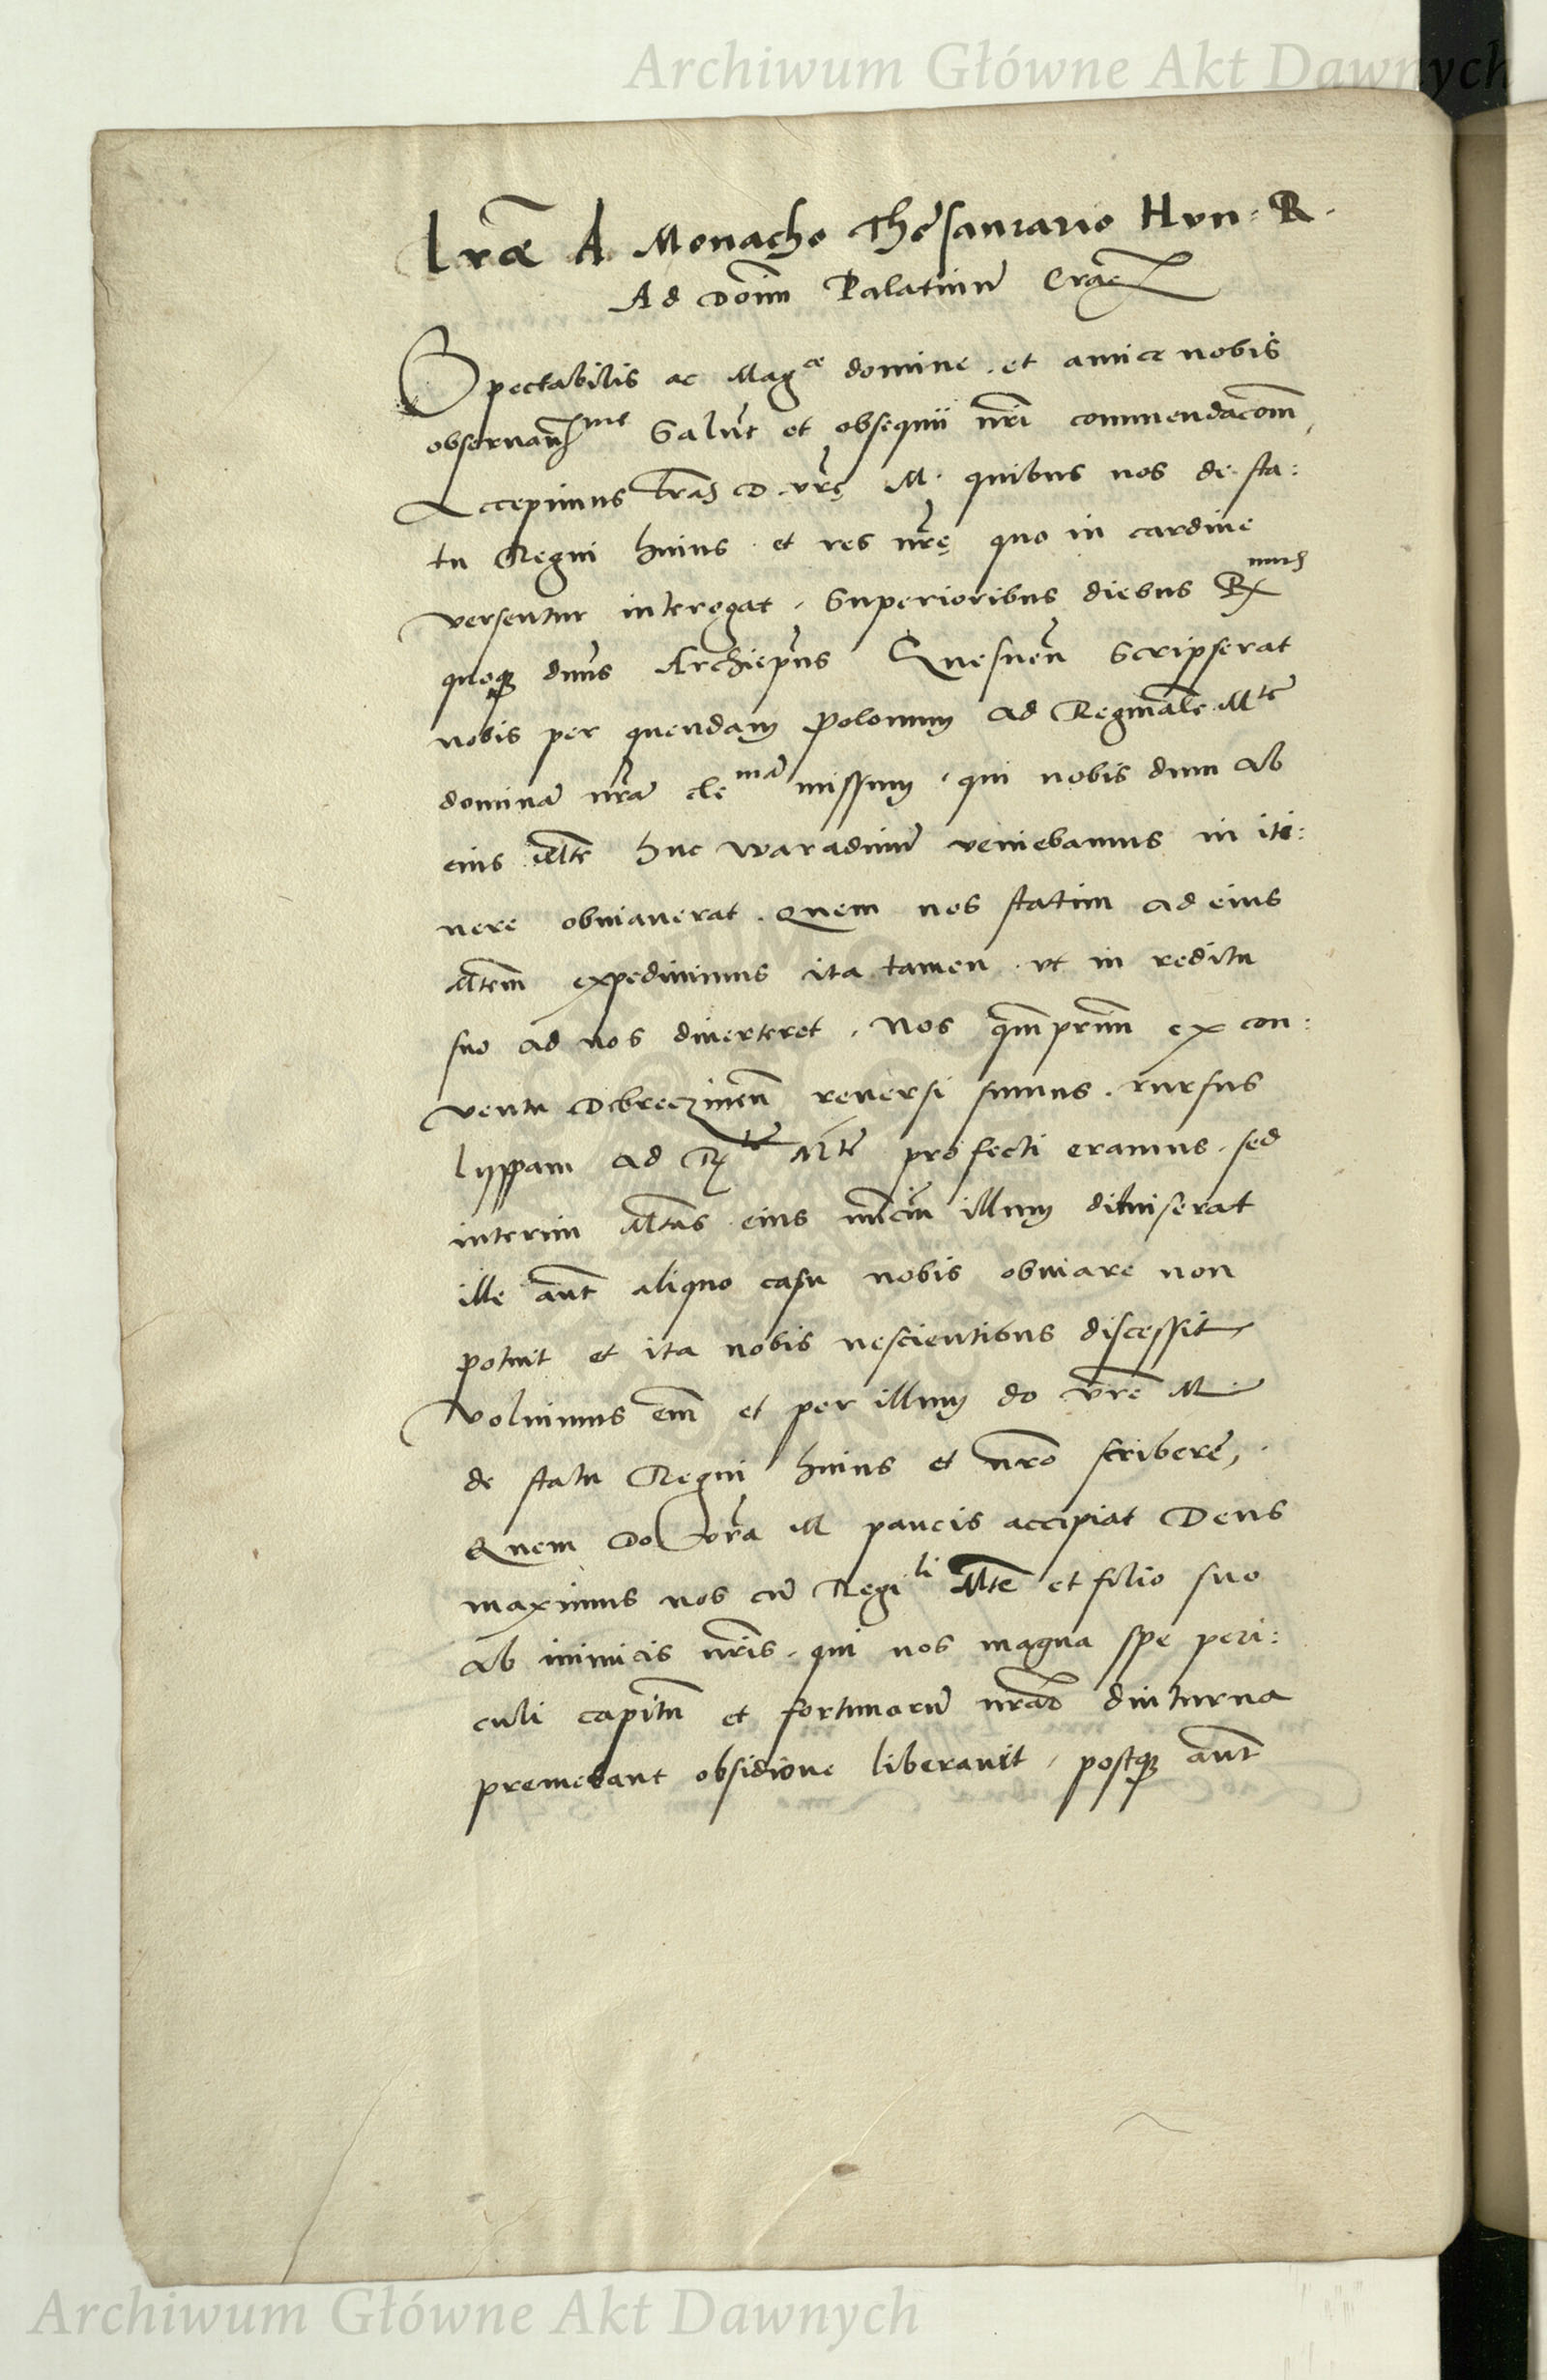 Archiwum Główne Akt Dawnych
lr̃æ A Monacho Thesaurario Hun: R.
Ad Doim̃ Palatinũ Crac̃
Spectabilis ac Mag̃ce domine et amice nobis
obseruan̄me Salut̃ et obsequii nr̃i commendacom̃,
Accepimus lr̃as D. vr̃ę M. quibus nos de sta:
tu Regni huius et res nr̃ę quo in cardine
versentur interogat. Superioribus diebus Rmus
quoq3 dn̄s Archiepũs Gnesnen̄ Scripserat
nobis per quendam Polonum ad Reginalẽ Mtẽ
dominã nr̃ã clemã missum, qui nobis dum ab
eius Mte huc waradinũ veniebamus in iti:
nere obuiauerat. Quem nos statim ad eius
Mtem̃ expediuimus ita tamen vt in reditu
suo ad nos diuerteret. Nos qm̃primũ ex con:
ventu Debreczinen̄ reuersi sumus. rursus
lyppam ad Rtẽ Mtẽ profecti eramus. sed
interim Mtas eius nũciũ illum dimiserat
ille aut̃ aliquo casu nobis obuiare non
potuit et ita nobis nescientibus discessit
Voluimus em̃ et per illum do vr̃e M.
de statu Regni huius et nr̃o scriberẽ,
Quem Do vr̃a M paucis accipiat Deus
maximus nos cũ Regili Mtẽ et filio suo
ab inimicis nr̃is. qui nos magna spe peri:
culi capitũ et fortunarũ nr̃arũ diuturna
premebant obsidione liberauit, postq3 aut̃
Archiwum Główne Akt Dawnych